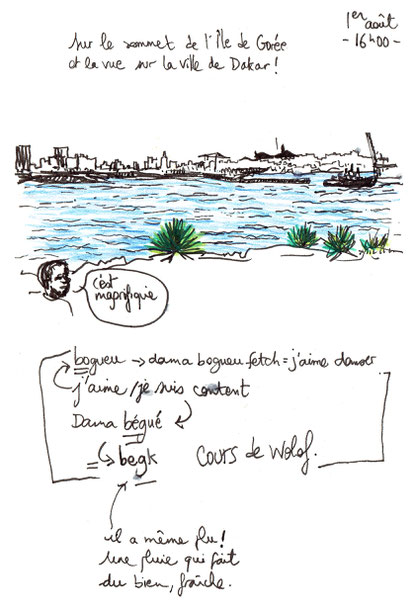 Sur le sommet de l'Île de Gorée
et la vue sur la ville de Dakar !
1er août
- 16h00 -
c'est
magnifique
bogueu → dama bogueu fetch = j'aime danser
j'aime / je suis content
Dama bégué
= begk
Cours de Wolof.
il a même plu !
Une pluie qui fait
du bien, fraîche.